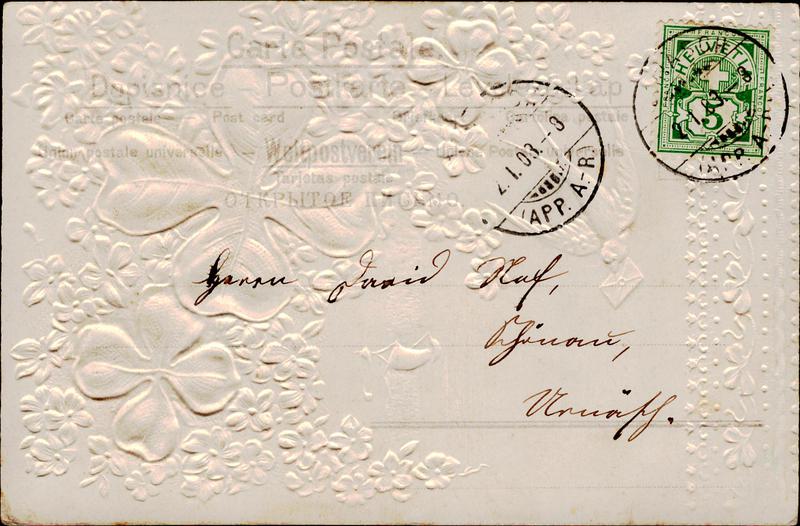 Carte Postale
Dopisnice Postkarte Levelező-Lap
Carte postale Post card Briefkaart
Union postale universelle Weltpostverein Union Postale
Tarjetas postale
ОТКРЫТОЕ ПИСЬМО.
2.I.03.-8
(APP. A.-R.
HELVETIA
FRANCO
5
2.I.03.-8
(APP. A.-R.
Herrn David Naf,
Schönau,
Urnäsch.